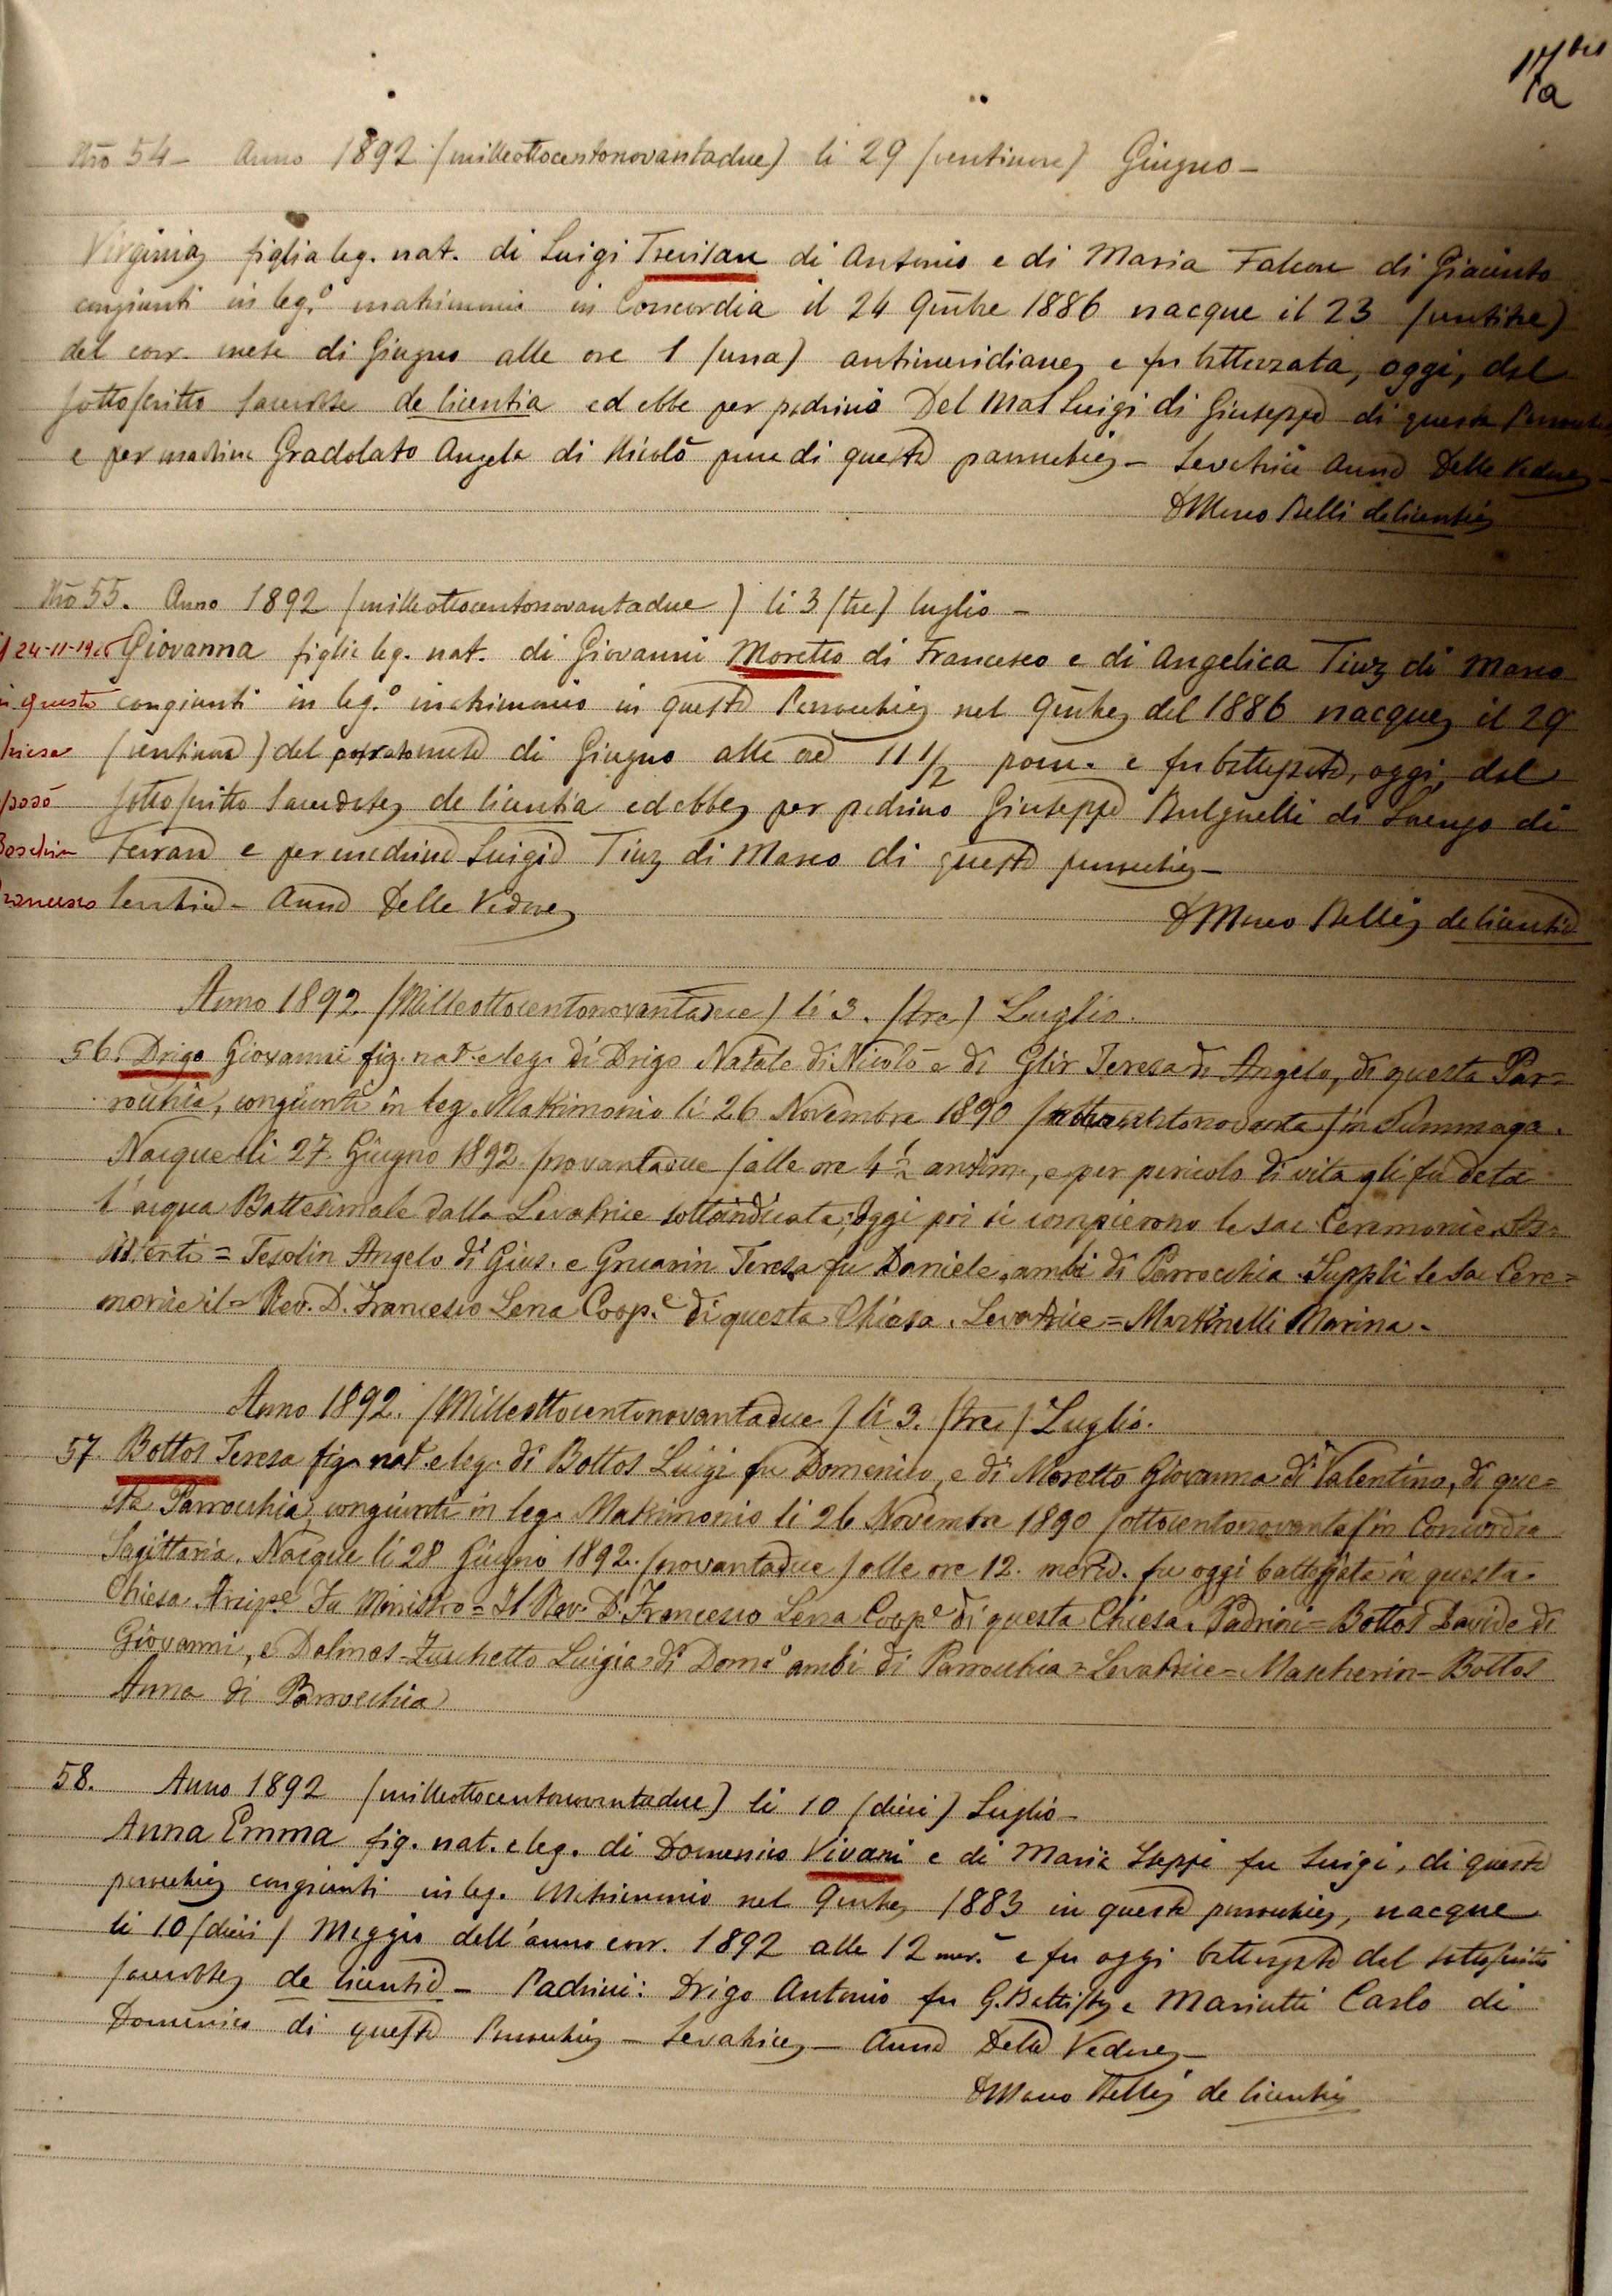 17 bis
1a
Nrō 54 – Anno 1892 (milleottocentonovantadue) li 29 (ventinove) Giugno –
Virginia figlia leg. nat. di Luigi Trevisan di Antonio e di Maria Falcon di Giacinto
congiunti in leg.º matrimonio in Concordia il 24 9mbre 1886 nacque il 23 (ventitre)
del corr. mese di Giugno alle ore 1 (una) antimeridiane e fu battezzata, oggi, dal
sottoscritto Sacerdote de licentia ed ebbe per padrino Del Mas Luigi di Giuseppe di questa Parrochia
e per madrina Gradolato Angela di Nicolò pure di questa parrochia – Levatrice Anna Delle Vedove –
D Marco Belli de licentia
Nrō 55. Anno 1892 (milleottocentonovantadue) li 3 (tre) luglio –
Giovanna figlia leg. nat. di Giovanni Moretto di Francesco e di Angelica Tinz di Marco
congiunti in leg.º matrimonio in questa Parrochia nel 9mbre del 1886 nacque il 29
(ventinove) del mese di Giugno alle ore 11 1/2 pom. e fu battezzata, oggi, dal
sottoscritto Sacerdote de licentia ed ebbe per padrino Giuseppe di Lorenzo di
e per madrina Luigia Tinz di Marco di questa parrochia –
Anna Delle Vedove
D Marco Belli de licentia
il 24-11-19
in questa
chiesa
sposò
Boschin
Francesco
Anno 1892. (Milleottocentonovantadue) li 3. (tre) Luglio.
56. Drigo Giovanni fig. nat. e leg. di Drigo Natale di Nicolò e di Glir Teresa di Angelo, di questa Par=
rocchia, congiunti in leg. Matrimonio li 26 Novembre 1890 (ottocentonovanta) in Summaga.
Nacque li 27. Giugno 1892. (novantadue) alle ore 4 1/2 antim., e per pericolo di vita gli fu data
l'acqua Battesimale dalla Levatrice sottoindicata; Oggi poi si compierono le sac. Ceremonie. As=
sistenti = Tesolin Angelo di Gius. e Gruarin Teresa fu Daniele, ambi di Parrocchia. Supplì le Sac. Cere=
monie il = Rev. D. Francesco Lena Coop.e di questa Chiesa. Levatrice = Martinelli Marina.
Anno 1892. (Milleottocentonovantadue) li 3. (tre) Luglio.
57. Bottos Teresa fig. nat. e leg. di Bottos Luigi fu Domenico, e di Moretto Giovanna di Valentino, di que=
sta Parrocchia, congiunti in leg. Matrimonio li 26 Novembre 1890 (ottocentonovanta) in Concordia
Sagittaria. Nacque li 28 Giugno 1892. (novantadue) alle ore 12. merid. fu oggi battezzata in questa
Chiesa Arcip.e Fu Ministro = Il Rev. D. Francesco Lena Coop.e di questa Chiesa. Padrini = Bottos Davide di
Giovanni, e Dalmas-Zuschetto Luigia di Dom.º ambi di Parrocchia = Levatrice = Mascherin-Bottos
Anna di Parrocchia
58. Anno 1892 (milleottocentonovantadue) li 10 (dieci) Luglio –
Anna Emma fig. nat. e leg. di Domenico Vivani e di Maria fu Luigi, di questa
parrochia congiunti in leg. Matrimonio nel 9mbre 1883 in questa parrochia, nacque
li 10 (dieci) Maggio dell'anno corr. 1892 alle 12 mer. e fu oggi battezzata dal sottoscritto
sacerdote de licentia – Padrini: Drigo Antonio fu G. Battista e Mariutti Carlo di
Domenico di questa Parrochia – Levatrice – Anna Delle Vedove –
D Marco Belli de licentia